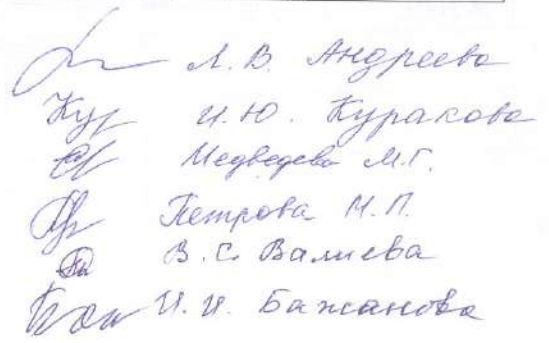 Л. В. Андреева
И. Ю. Куракова
Медведева М. Г.
Петрова Н. П.
В. С. Валиева
И. И. Бажанова